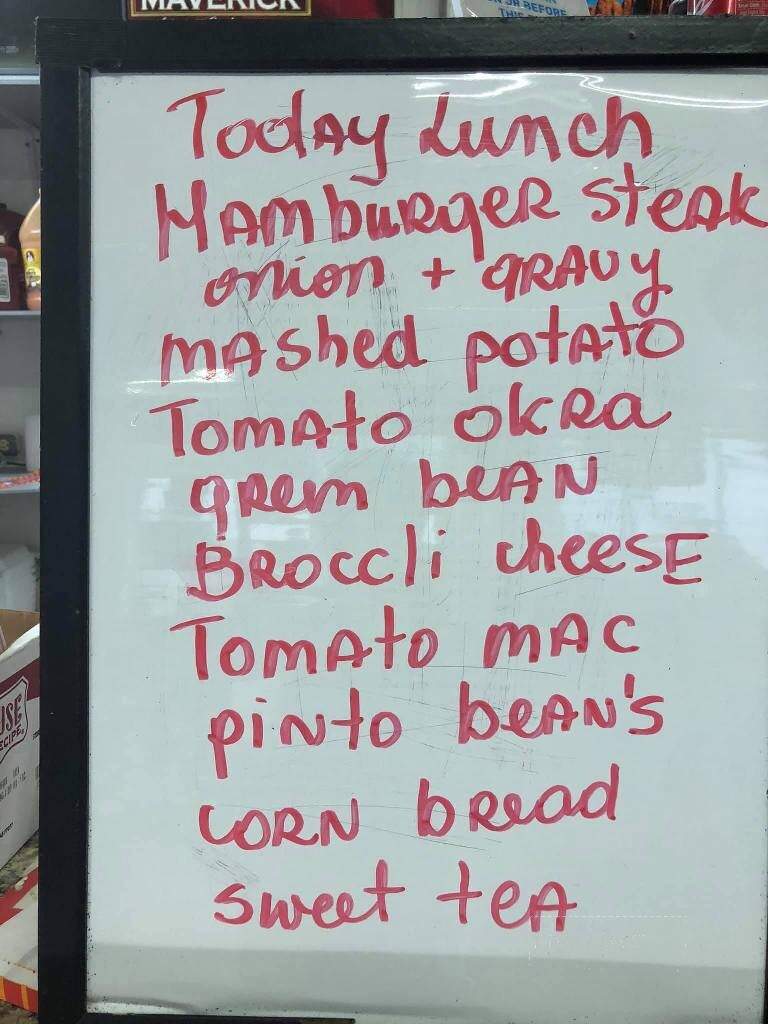 MAVERICK
OR BEFORE
THIS
Today Lunch
HAMbuRgeR steAk
onion + gRAVy
mAshed potAtO
TomAto okRa
qrem beAN
BRoccli cheesE
TomAto mac
piNto beAN's
USE
ECIPE
coRN bread
sweet teA